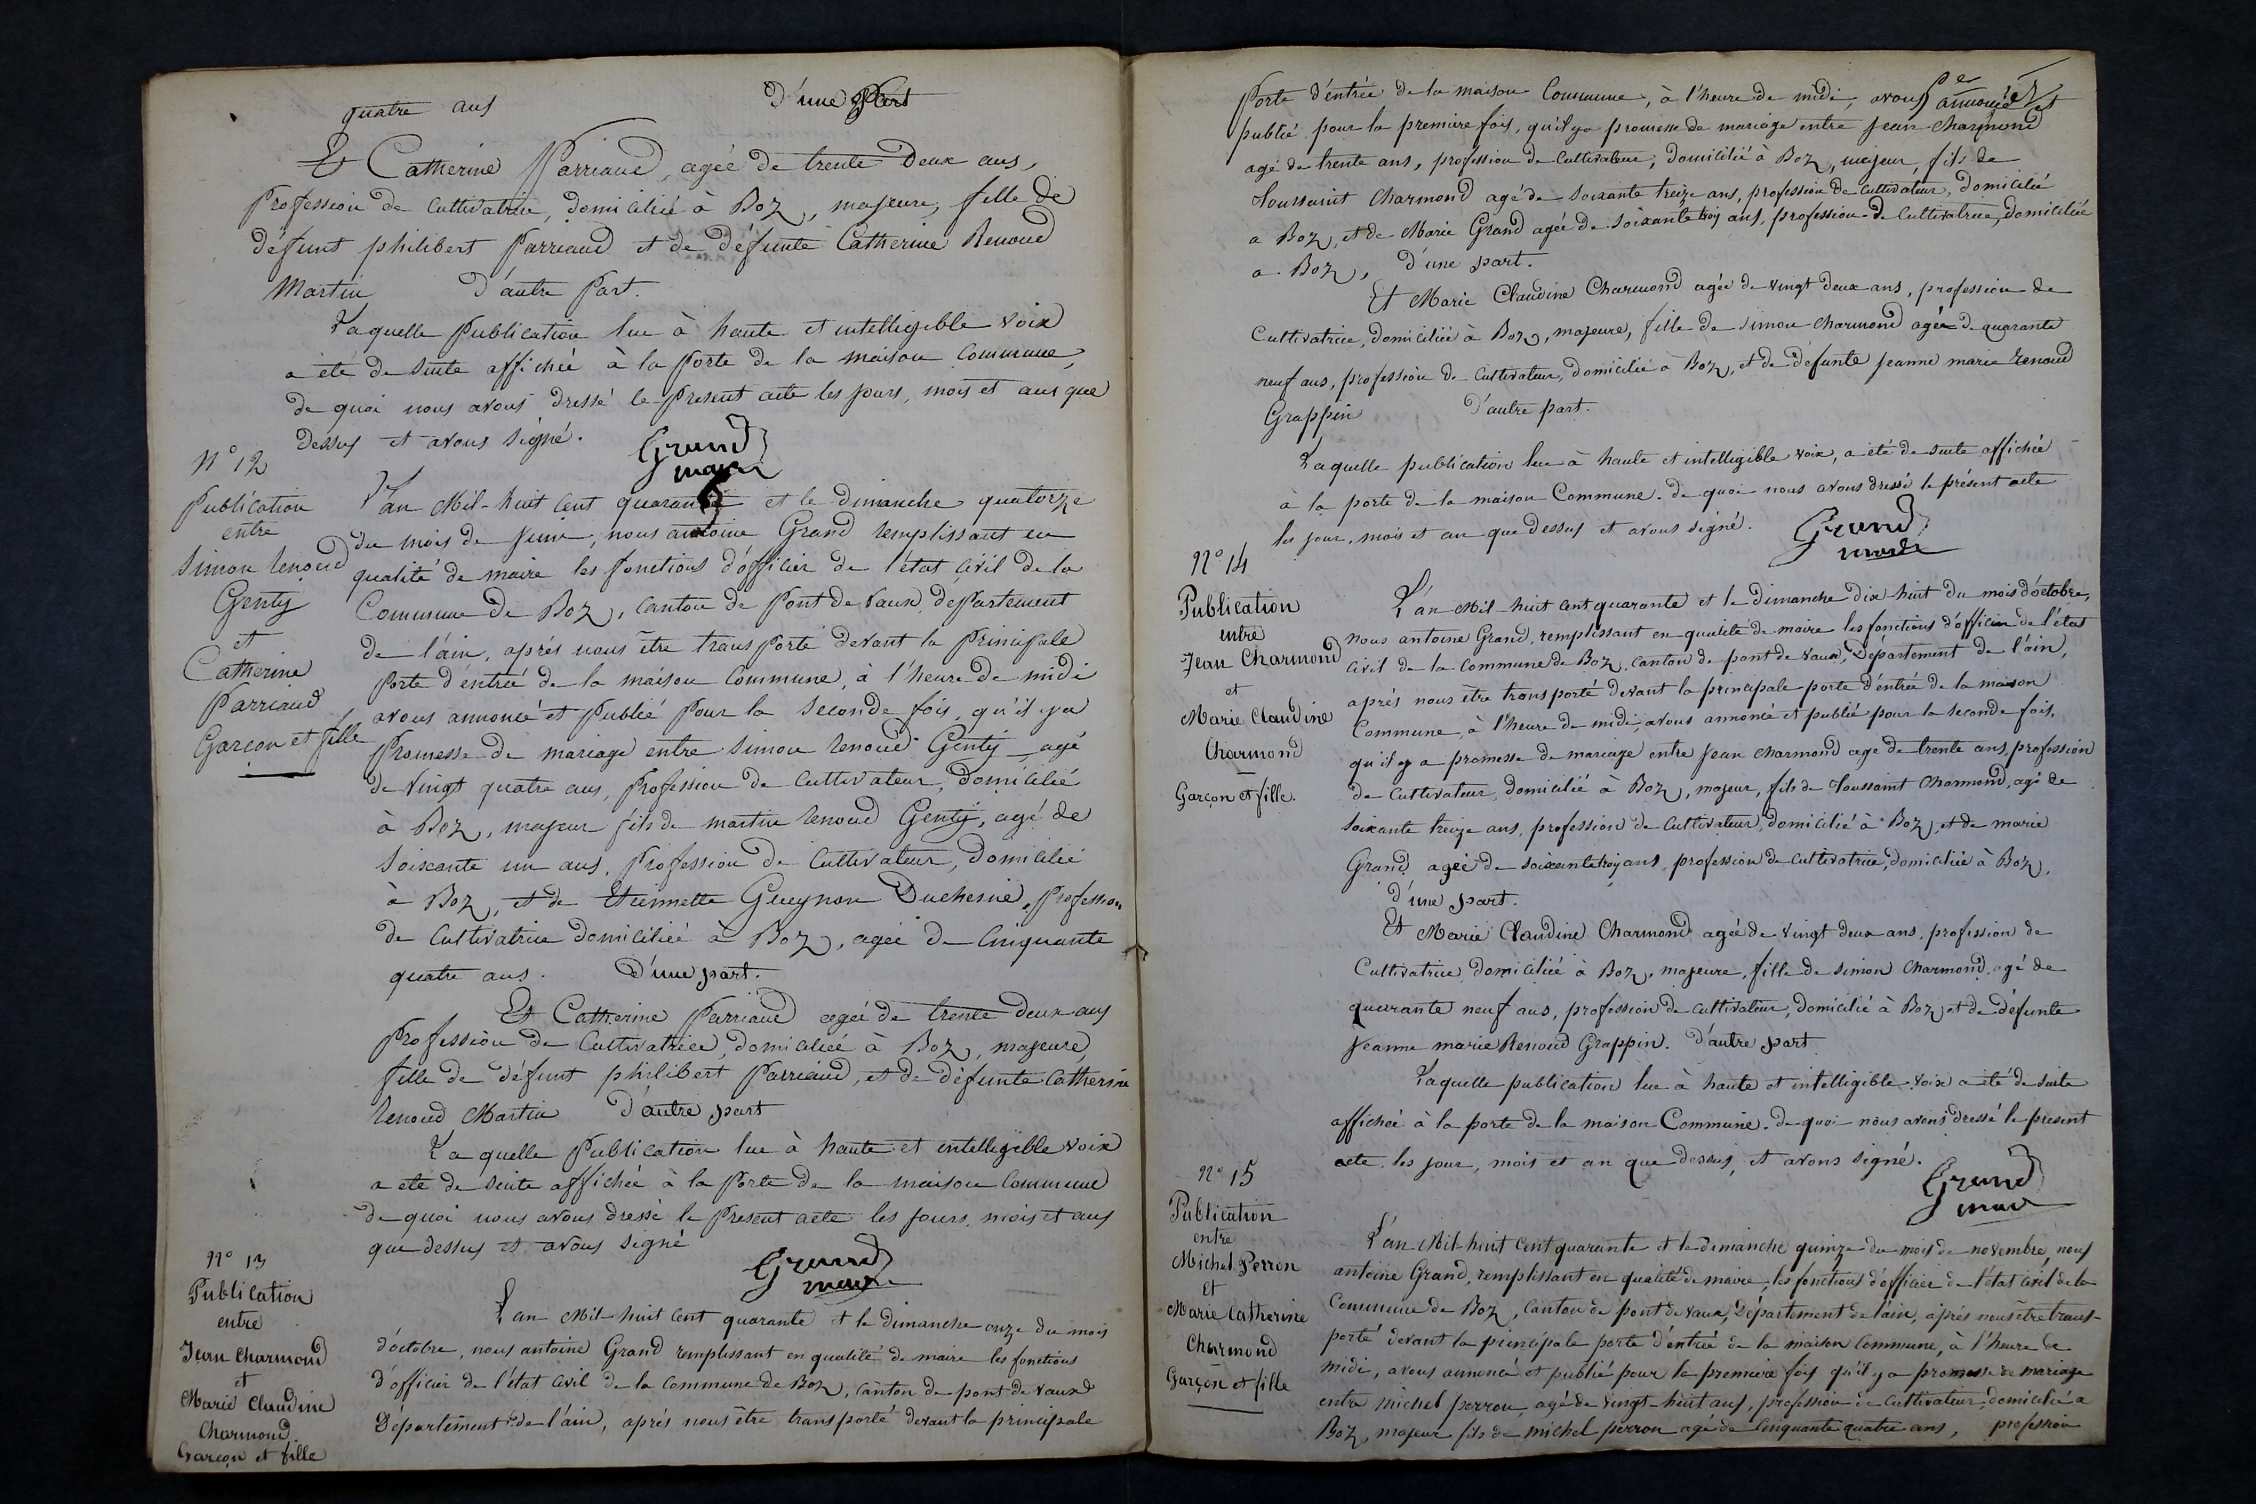 quatre ans d'une Part
Et Catherine Parriaud, agée de trente Deux ans,
Profession de Cultivatrice, domiciliée à Boz, majeure, fille de
défunt philibert Parriaud et de défunte Catherine Renoud
Martin d'autre Part.
Laquelle Publication lue à haute et intelligible voix
a été de suite affichée à la Porte de la maison Commune,
de quoi nous avons dressé le Présent acte les jours, mois et ans que
dessus et avons signé. Grand
maire
N° 12
Publication
entre
Simon Renoud
Genty
et
Catherine
Parriaud
Garçon et fille
L'an Mil-huit cent quarante et le dimanche quatorze
du mois de Juin, nous antoine Grand remplissant en
qualité de maire les fonctions d'officier de l'état Civil de la
Commune de Boz, canton de Pont de Vaux, département
de l'ain, après nous être transporté devant la Principale
Porte d'éntrée de la maison Commune, à l'heure de midi
avons annoncé et Publié Pour la Seconde fois, qu'il ya
Promesse de mariage entre Simon Renoud Genty agé
de Vingt quatre ans, Profession de Cultivateur, domicilié
à Boz, majeur fils de martin Renoud Genty, agé de
Soixante un ans, Profession de Cultivateur, domicilié
à Boz, et de Etiennette Gueynon Duchesne, Profession
de Cultivatrice domiciliée à Boz, agée de Cinquante
quatre ans. D'une part.
Et Catherine Parriaud agée de trente deux ans
Profession de Cultivatrice, domiciliée à Boz, majeure
fille de défunt philibert Parriaud, et de défunte Catherine
Renoud Martin D'autre part
Laquelle Publication lue à haute et intelligible voix
a eté de suite affichée à la Porte de la maison Commune
de quoi nous avons dressé le Présent acte les jours, mois et ans
que dessus et avons signé
Grand
maire
N° 13
Publication
entre
Jean Charmond
et
Marie Claudine
Charmond
Garçon et fille
L'an Mil-huit Cent quarante et le dimanche onze du mois
d'octobre, nous antoine Grand remplissant en qualité de maire les fonctions
d'officier de l'état Civil de la Commune de Boz, Canton de pont de vaux
Département de l'ain, après nous être transporté devant la principale
Porte d'éntrée de la maison Commune, à l'heure de midi, avons annoncé et
publié pour la première fois, qu'il ya promesse de mariage entre Jean Charmond
agé de trente ans, profession de Cultivateur, domicilié à Boz, majeur, fils de
Toussaint Charmond agé de Soixante treize ans, profession de Cultivateur, domicilié
a Boz, et de Marie Grand agée de Soixante trois ans, profession de Cultivatrice, domiciliée
a Boz, d'une part.
Et Marie Claudine Charmond agée de vingt deux ans, profession de
Cultivatrice, domiciliée à Boz, majeure, fille de Simon Charmond agé de quarante
neuf ans, profession de Cultivateur, domicilié à Boz, et de défunte Jeanne marie Renoud
Grappin D'autre part.
Laquelle publication lue à haute et intelligible voix, a été de suite affichée
à la porte de la maison Commune. de quoi nous avons dressé le présent acte
les jour, mois et an que Dessus et avons signé. Grand
maire
N° 14
Publication
entre
Jean Charmond
et
Marie Claudine
Charmond
Garçon et fille.
L'an Mil huit cent quarante et le Dimanche dix huit du mois d'octobre,
nous antoine Grand, remplissant en qualité de maire les fonctions d'officier de l'état
Civil de la Commune de Boz, canton de pont de vaux, Département de l'ain,
après nous être transporté devant la principale porte d'éntrée de la maison
Commune, à l'heure de midi, avons annoncé et publié pour la seconde fois,
qu'il y a promesse de mariage entre Jean Charmond agé de trente ans, profession
de Cultivateur, domicilié à Boz, majeur, fils de Toussaint Charmond, agé de
soixante treize ans, profession de Cultivateur, domicilié à Boz, et de marie
Grand agée de soixante trois ans, profession de Cultivatrice, domiciliée à Boz,
d'une part.
Et Marie Claudine Charmond agée de vingt deux ans, profession de
Cultivatrice, domiciliée à Boz, majeure, fille de Simon Charmond, agé de
quarante neuf ans, profession de Cultivateur, domicilié à Boz, et de défunte
Jeanne marie Renoud Grappin. D'autre part
Laquelle publication lue à haute et intelligible voix a été de suite
affichée à la porte de la maison Commune. de quoi nous avons dressé le présent
acte les jour, mois et an que dessus, et avons signé.
Grand
maire
N° 15
Publication
entre
Michel Perron
et
Marie Catherine
Charmond
Garçon et fille
L'an Mil-huit Cent quarante et le dimanche quinze du mois de novembre, nous
antoine Grand, remplissant en qualité de maire, les fonctions d'officier de l'état civil de la
Commune de Boz, Canton de pont de vaux, Département de l'ain, après nous être trans-
porté devant la principale porte d'éntrée de la maison Commune, à l'heure de
midi, avons annoncé et publié pour la première fois qu'il ya promesse de mariage
entre michel perron, agé de vingt-huit ans, profession de Cultivateur, domicilié a
Boz, majeur fils de michel perron agé de Cinquante quatre ans, profession